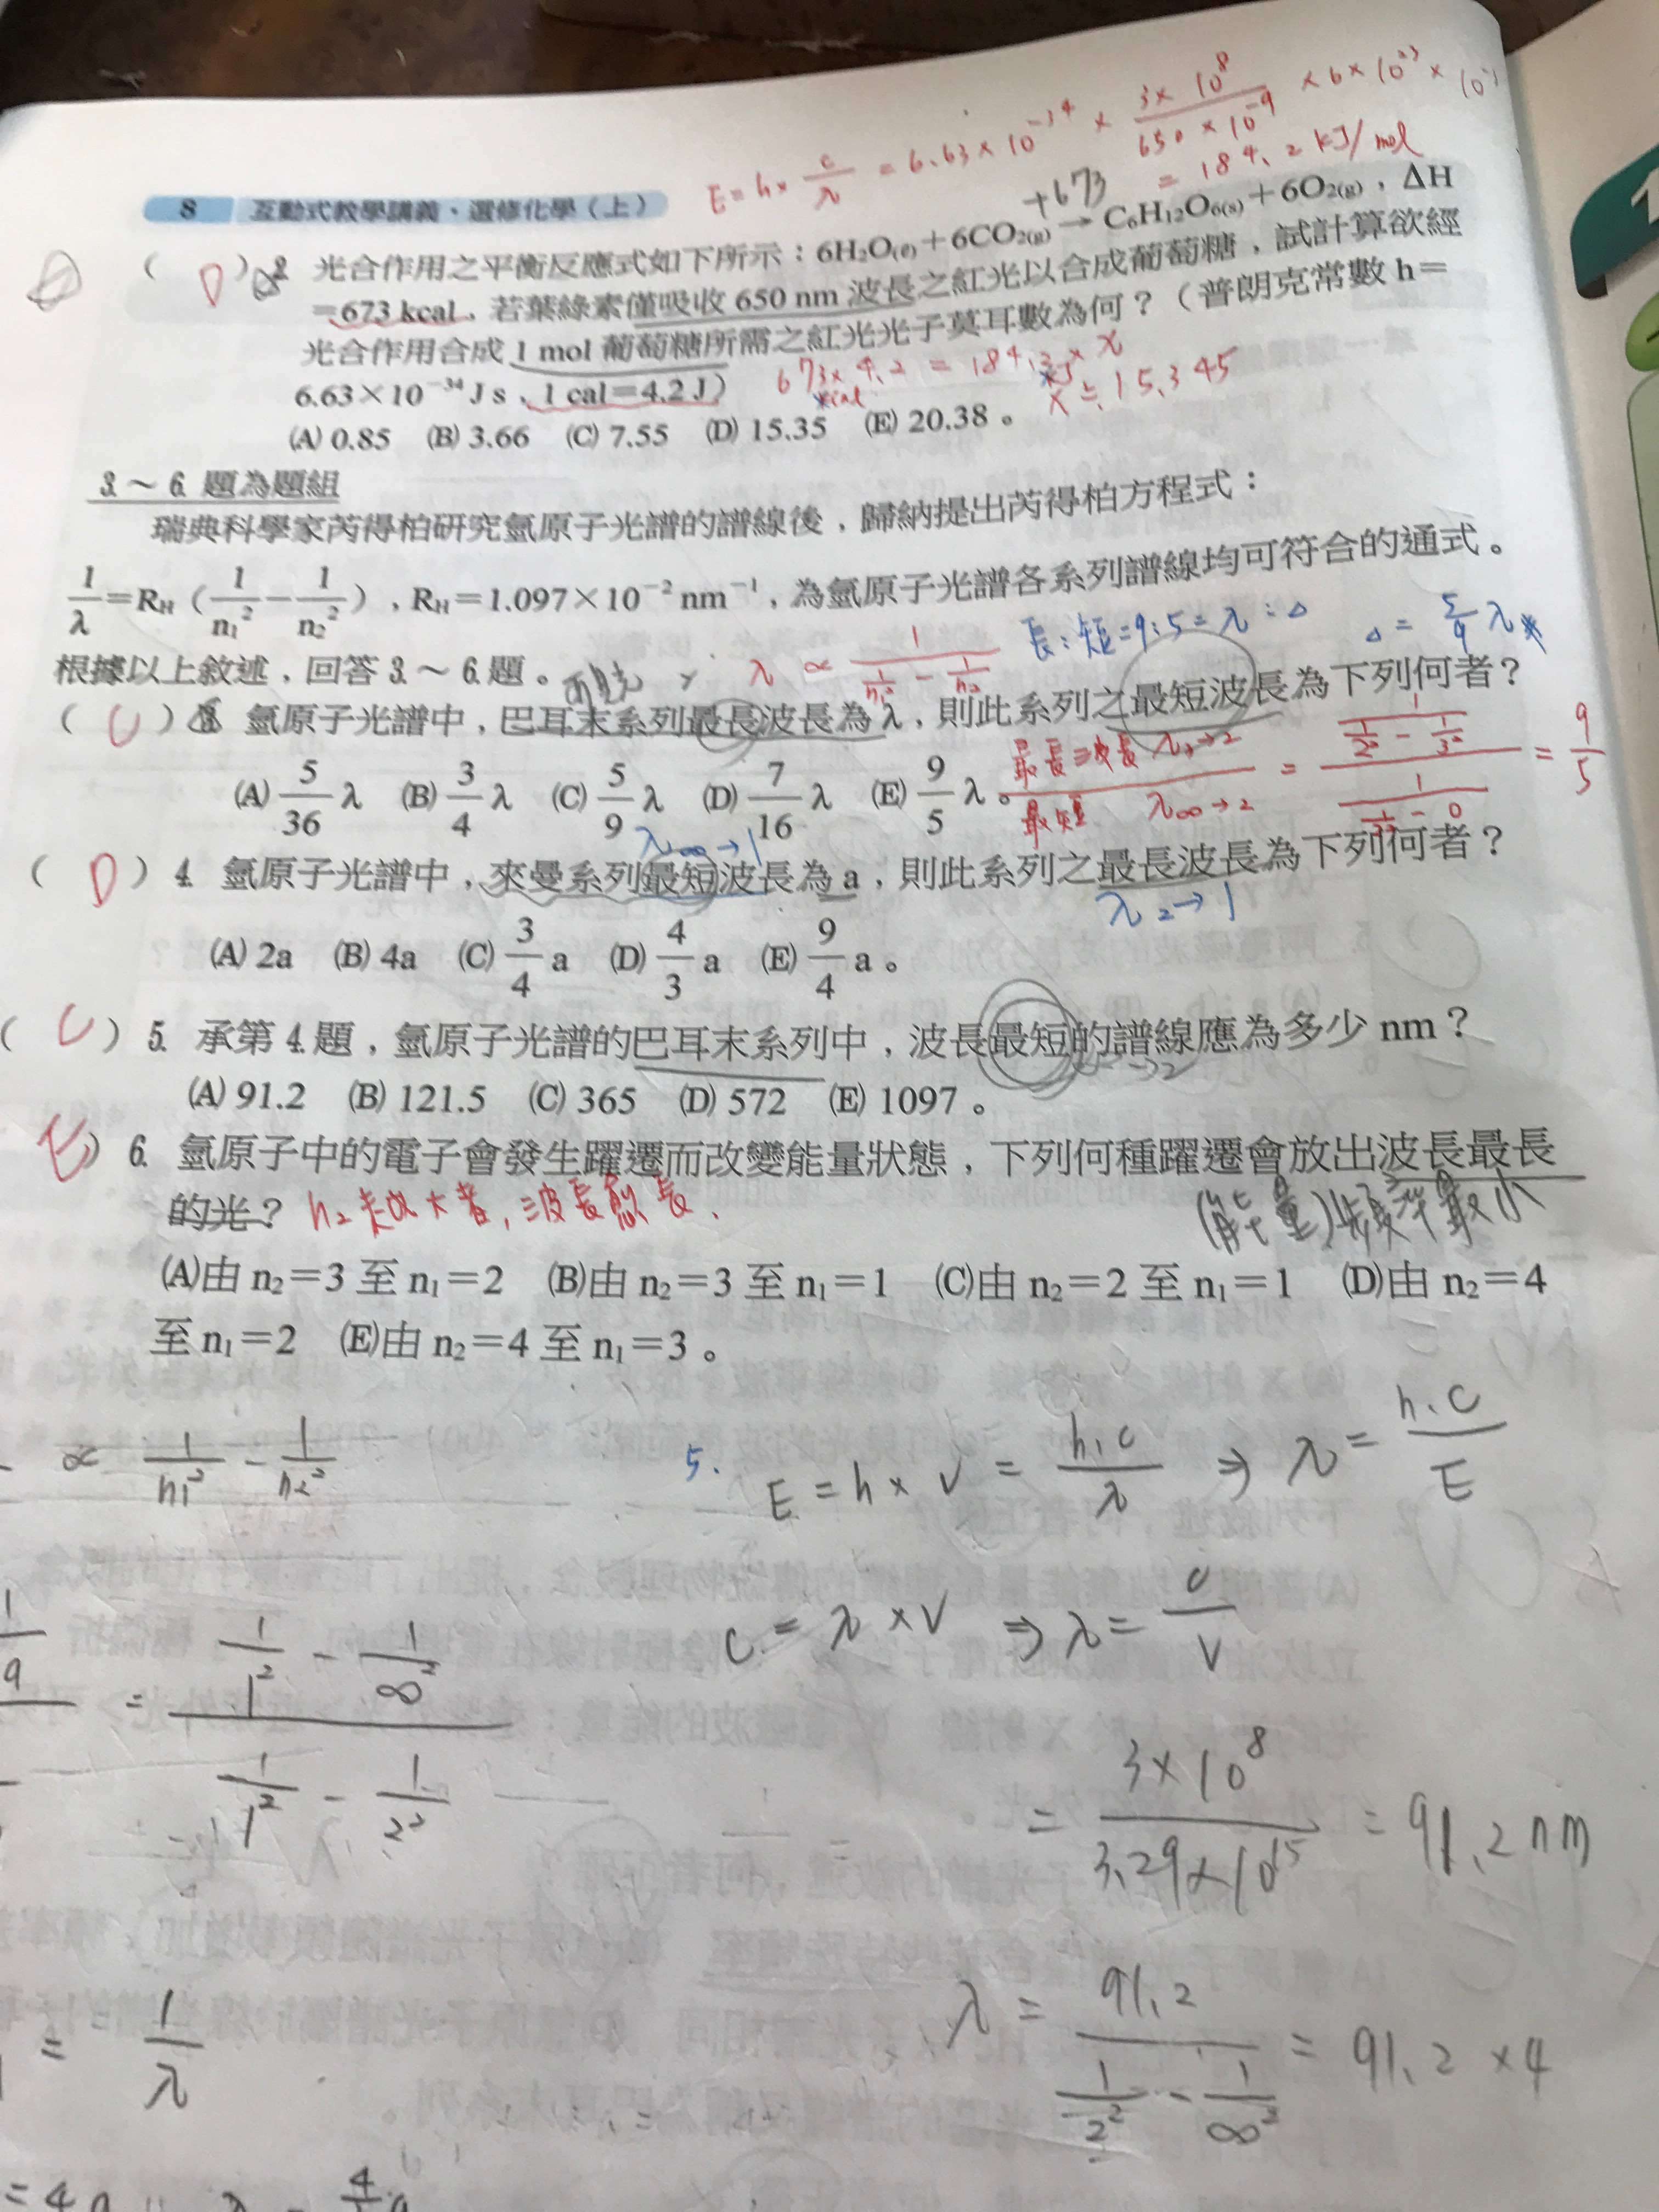 E = h × c/λ = 6.63 × 10^-34 × (3 × 10^8)/(650 × 10^-9) × 6 × 10^23 ×
= 184.2 kJ/mol
8 互動式教學講義、選修化學（上）
+673
( D ) 2. 光合作用之平衡反應式如下所示：6H₂O(ℓ)＋6CO₂(g) → C₆H₁₂O₆(s)＋6O₂(g)，ΔH
＝673 kcal，若葉綠素僅吸收 650 nm 波長之紅光以合成葡萄糖，試計算欲經
光合作用合成 1 mol 葡萄糖所需之紅光光子莫耳數為何？（普朗克常數 h＝
6.63×10⁻³⁴ J s、1 cal＝4.2 J）
673 × 4.2 = 184.2 × x
kcal kJ
x ≒ 15.345
(A) 0.85 (B) 3.66 (C) 7.55 (D) 15.35 (E) 20.38。
3.～6. 題為題組
瑞典科學家芮得柏研究氫原子光譜的譜線後，歸納提出芮得柏方程式：
1/λ＝R_H（1/n₁²－1/n₂²），R_H＝1.097×10⁻² nm⁻¹，為氫原子光譜各系列譜線均可符合的通式。
長：短=9：5=λ：△ △ = 5/9 λ
根據以上敘述，回答 3.～6. 題。
λ ∝ 1/(1/n₁² - 1/n₂)
( C ) 3. 氫原子光譜中，巴耳末系列最長波長為 λ，則此系列之最短波長為下列何者？
(A) 5/36 λ (B) 3/4 λ (C) 5/9 λ (D) 7/16 λ (E) 9/5 λ。
最長波長 λ3→2 / 最短 λ∞→2 = (1/(1/2² - 1/3²))/(1/(1/2² - 0)) = 9/5
λ∞→1
( D ) 4. 氫原子光譜中，來曼系列最短波長為 a，則此系列之最長波長為下列何者？
λ2→1
(A) 2a (B) 4a (C) 3/4 a (D) 4/3 a (E) 9/4 a。
( C ) 5. 承第 4. 題，氫原子光譜的巴耳末系列中，波長最短的譜線應為多少 nm？
∞→2
(A) 91.2 (B) 121.5 (C) 365 (D) 572 (E) 1097。
E ) 6. 氫原子中的電子會發生躍遷而改變能量狀態，下列何種躍遷會放出波長最長
的光？
n₂ 大者，波長愈長.
(能量)頻率最小
(A)由 n₂＝3 至 n₁＝2 (B)由 n₂＝3 至 n₁＝1 (C)由 n₂＝2 至 n₁＝1 (D)由 n₂＝4
至 n₁＝2 (E)由 n₂＝4 至 n₁＝3。
∝ 1/n₁² - 1/n₂²
1/9 = (1/1² - 1/∞²)/(1/1² - 1/2²)
= 1/λ
5. E = h × ν = h.c/λ ⇒ λ = h.c/E
c = λ × ν ⇒ λ = c/ν
= (3 × 10^8)/(3.29 × 10^15) = 91.2 nm
λ = 91.2/(1/2² - 1/∞²) = 91.2 × 4